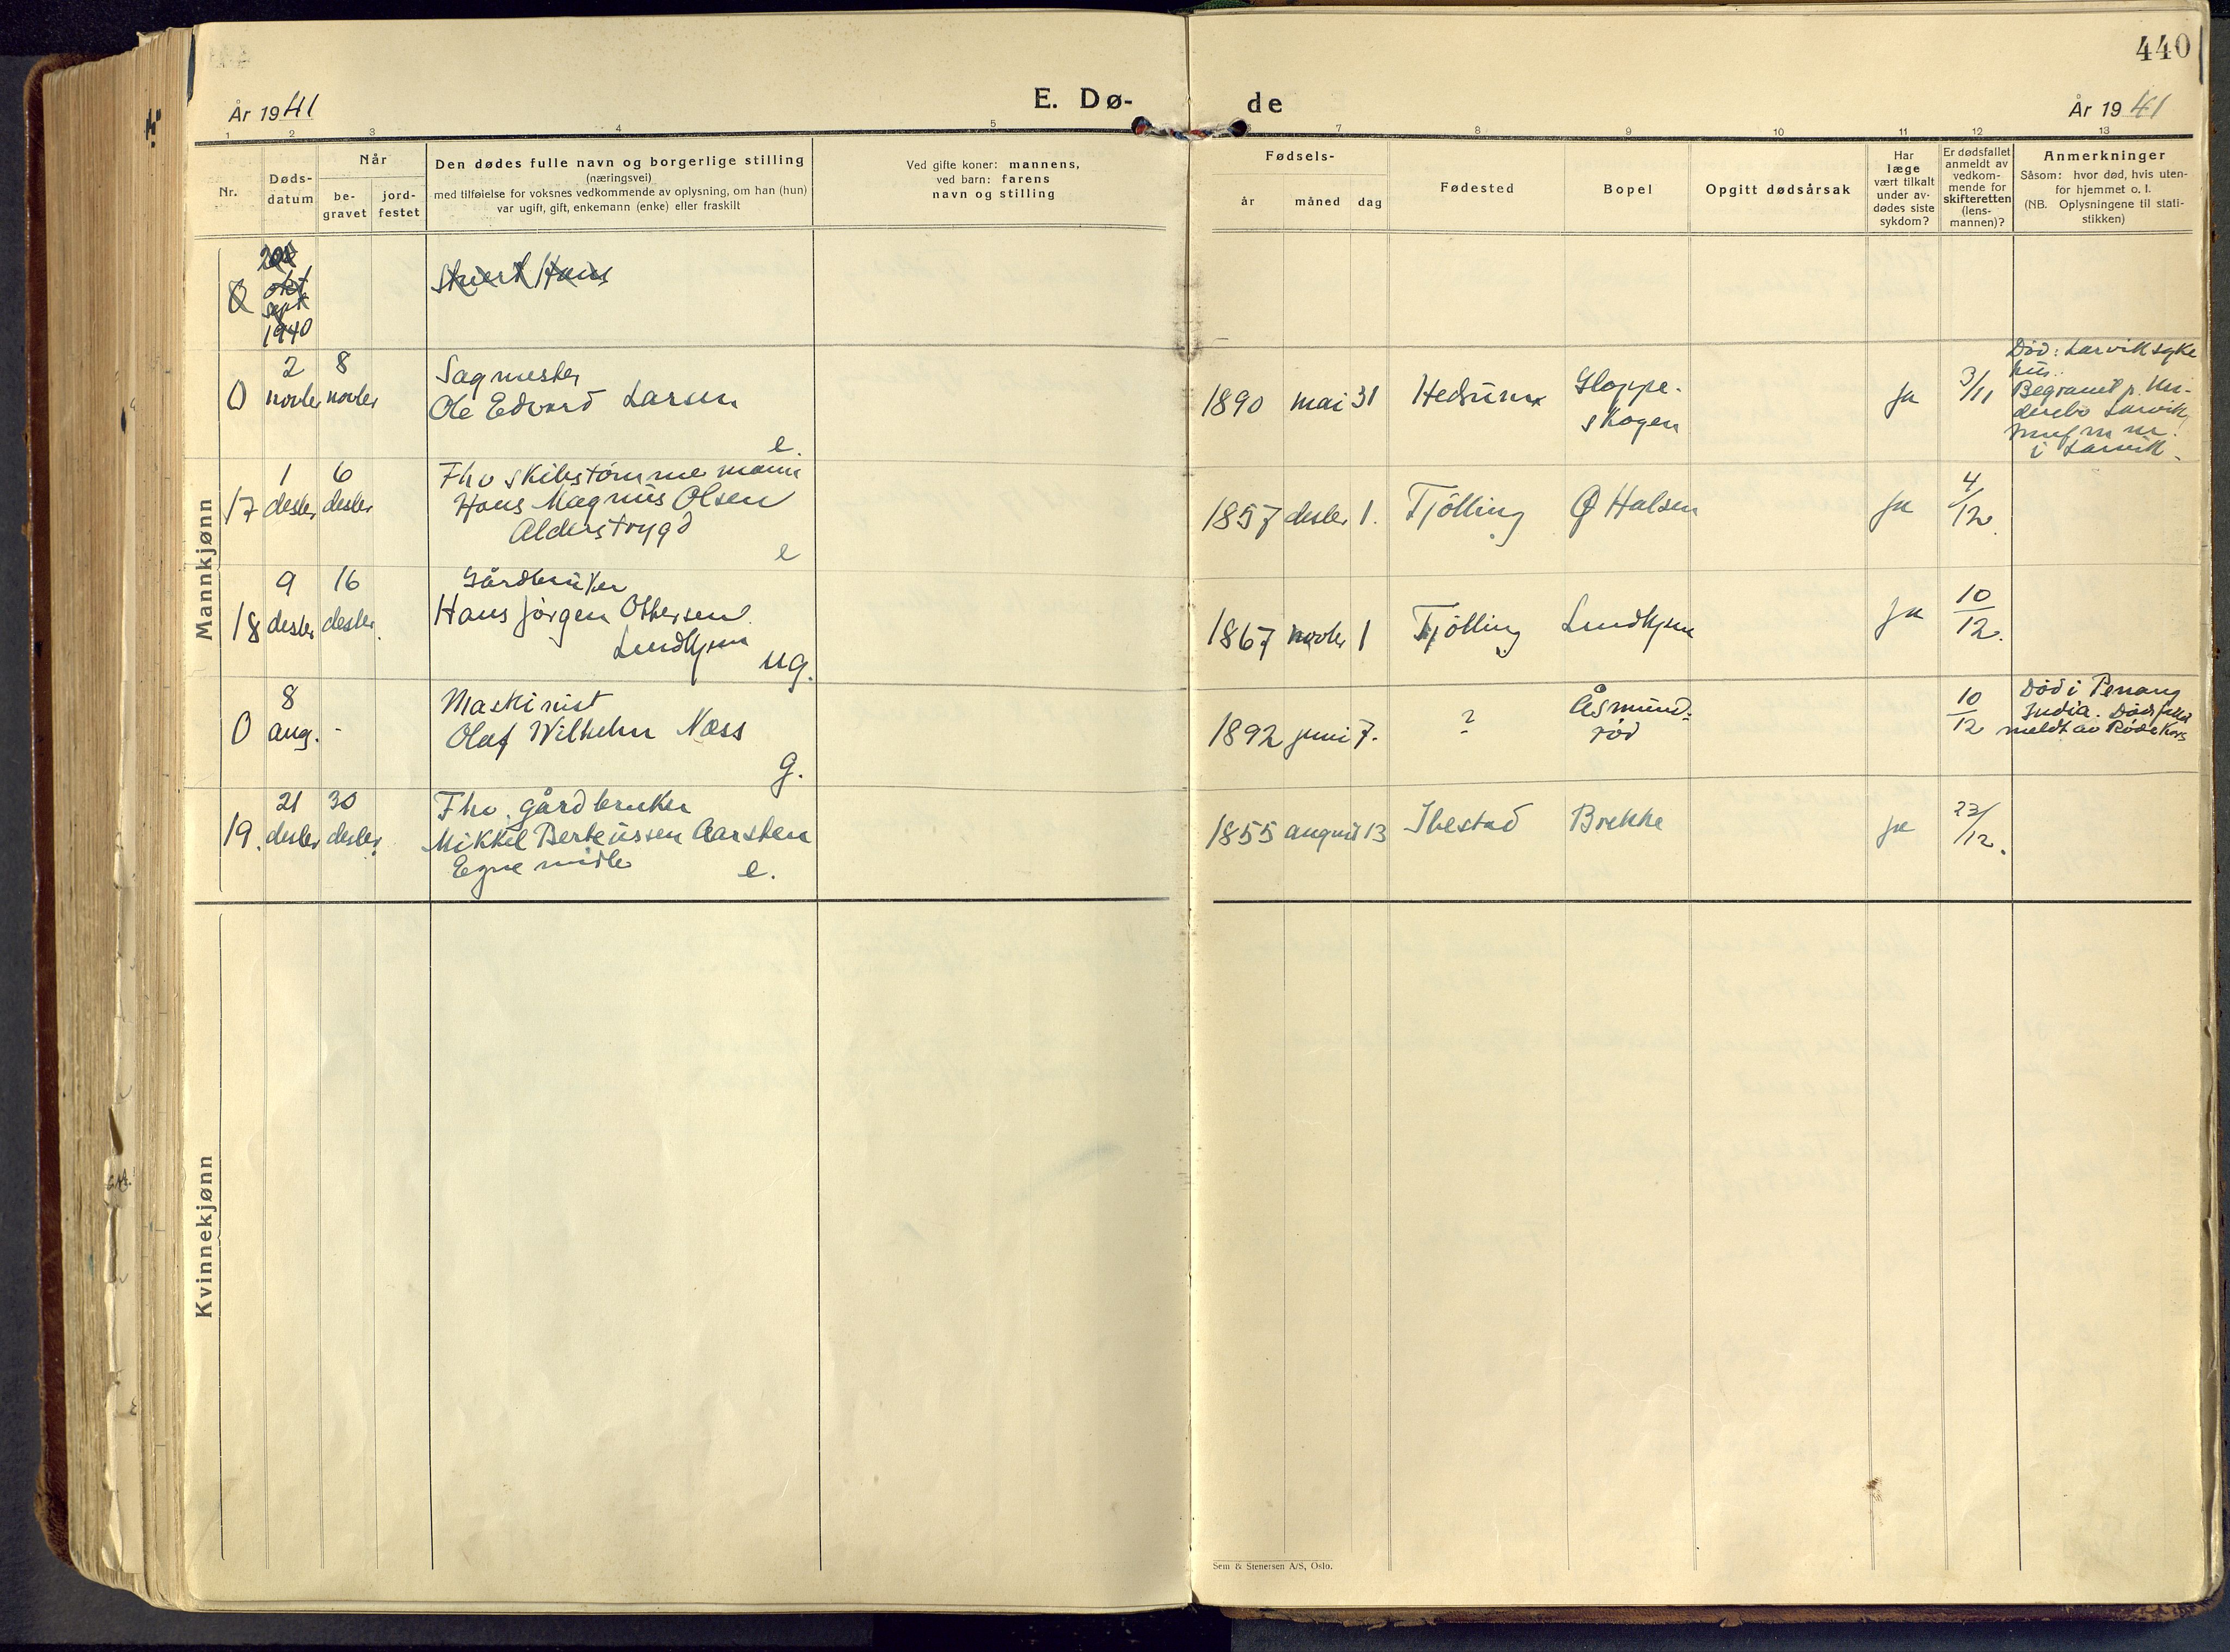 440
År 1941
E. Dø-
de
År 1941
1 2 3 4 5
7 8 9 10 11 12 13
Nr.
Døds-
datum
Når
be-
gravet
jord-
festet
Den dødes fulle navn og borgerlige stilling
(næringsvei)
med tilføielse for voksnes vedkommende av oplysning, om han (hun)
var ugift, gift, enkemann (enke) eller fraskilt
Ved gifte koner: mannens,
ved barn: farens
navn og stilling
Fødsels-
år
måned
dag
Fødested
Bopel
Opgitt dødsårsak
Har
læge
vært tilkalt
under av-
dødes siste
sykdom?
Er dødsfallet
anmeldt av
vedkom-
mende for
skifteretten
(lens-
mannen)?
Anmerkninger
Såsom: hvor død, hvis uten-
for hjemmet o. l.
(NB. Oplysningene til stati-
stikken)
Mannkjønn
0
okt
sept
1940
Hans
0
2
novbr
8
novbr
Sagmester
Ole Edvard Larsen
e.
1890 mai 31
Hedrum
Gloppe-
skogen
Ja
3/11
Død: Larvik syke
hus.
Begravet p. Un-
dersbo Larvik
i Larvik.
17
1
desbr
6
desbr
Fhv skibstømmemann
Hans Magnus Olsen
Alderstrygd
e
1857 desbr 1.
Tjølling
Ø Halsen
Ja
4/12.
18
9
desbr
16
desbr.
Gårdbruker
Hans Jørgen Ottersen
Lindhjem
ug.
1867 novbr 1
Tjølling
Lindhjem
Ja
10/12.
0
8
aug.
-
Maskinist
Olaf Wilhelm Næss
g.
1892 juni 7.
?
Åsmund-
rød
10/12
Død i Penang
India. Dødsfallet
meldt av Røde Kors
19.
21
desbr
30
desbr.
Fhv. gårdbruker
Mikkel Berteussen Aarsten
Egne midle
e.
1855 august 13
Ibestad
Brekke
ja
23/12.
Kvinnekjønn
Sem & Stenersen A/S, Oslo.